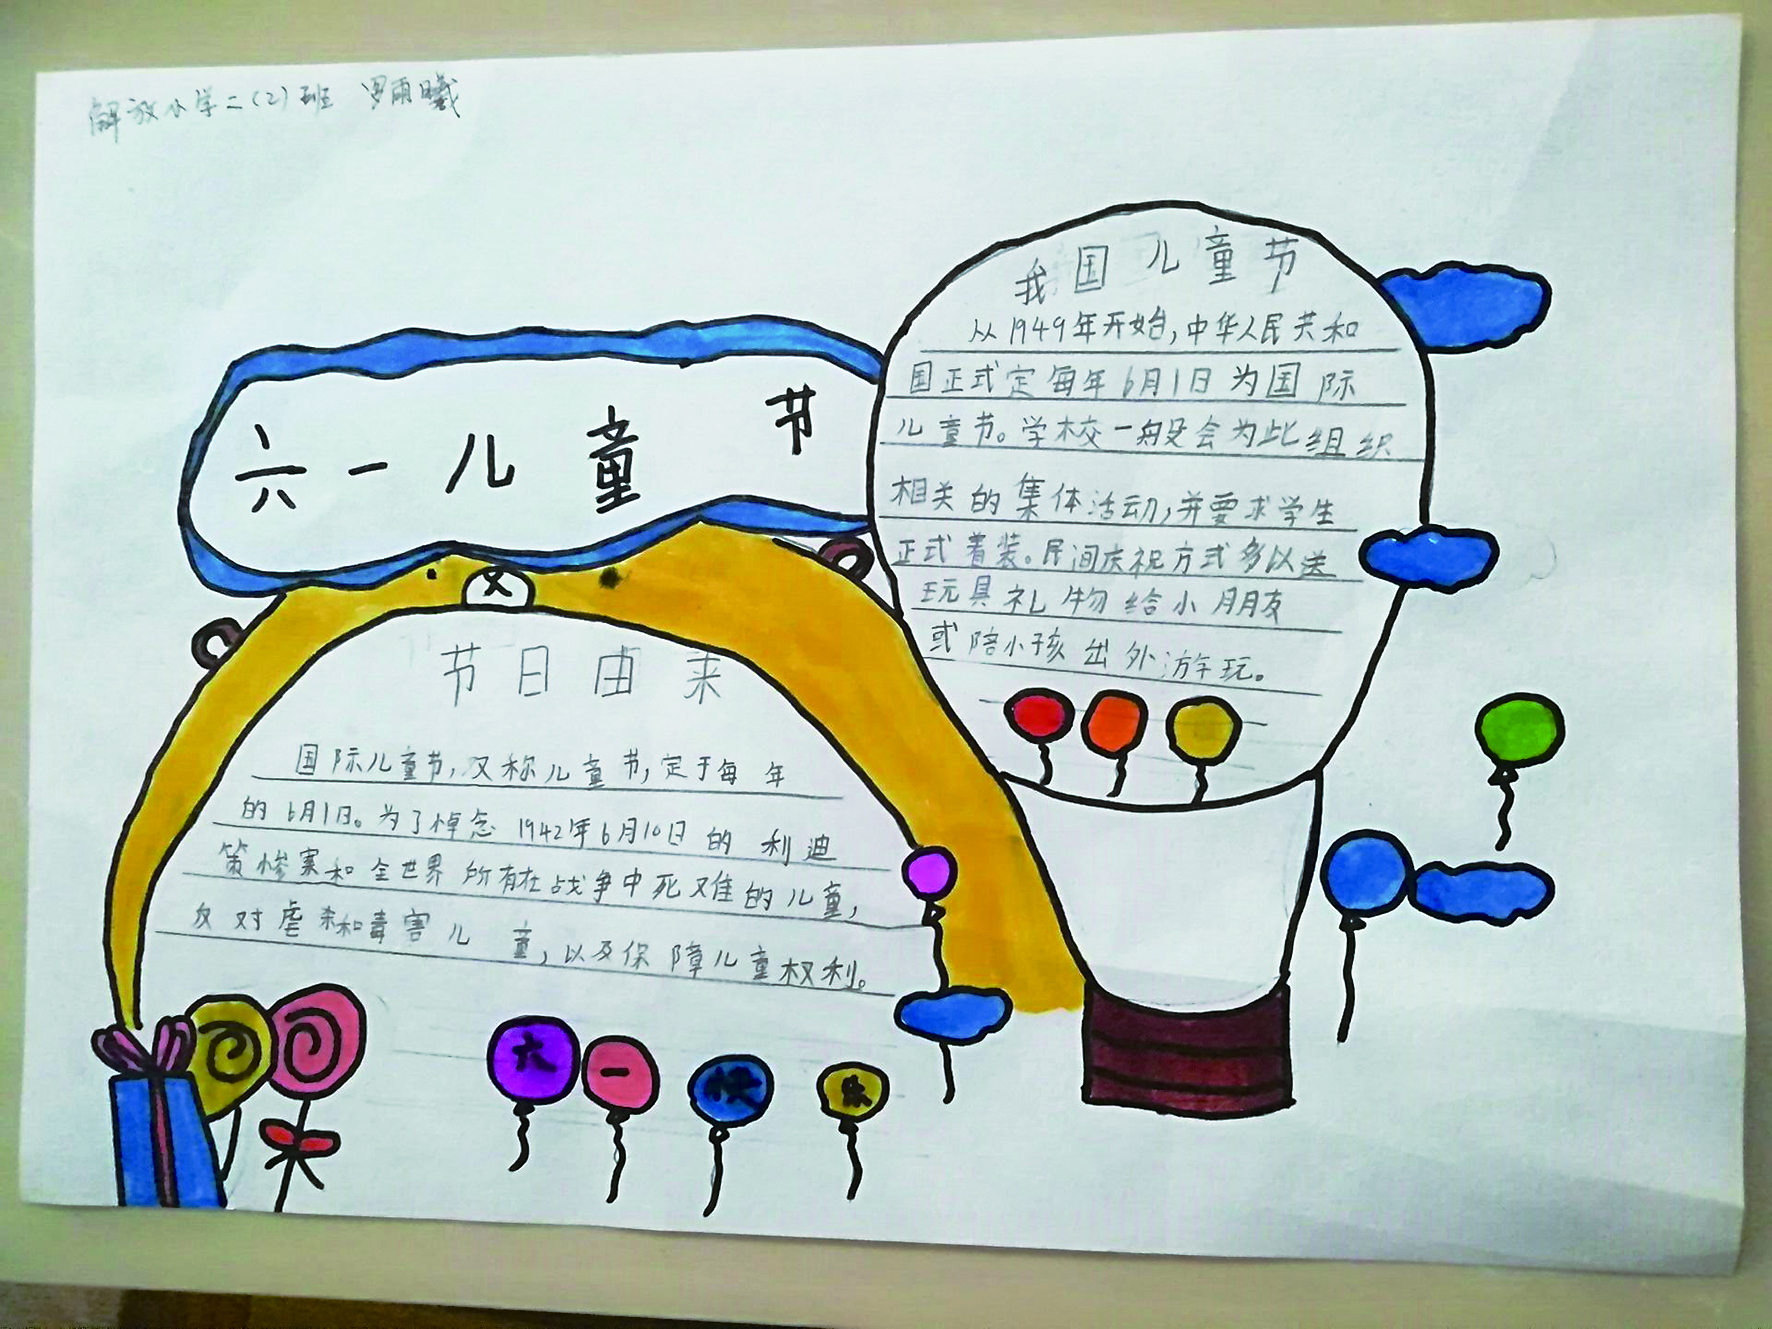 解放小学二(2)班 罗雨曦
六一儿童节
我国儿童节
从1949年开始,中华人民共和
国正式定每年6月1日为国际
儿童节。学校一般会为此组织
相关的集体活动,并要求学生
正式着装。民间庆祝方式多以送
玩具礼物给小朋友
或陪小孩出外游玩。
节日由来
国际儿童节,又称儿童节,定于每年
的6月1日。为了悼念1942年6月10日的利迪
策惨案和全世界所有在战争中死难的儿童,
反对虐杀和毒害儿童,以及保障儿童权利。
六一快乐